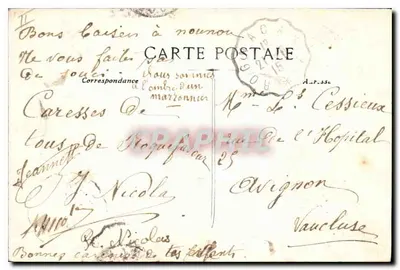 II
Bons baisers à nounou
Ne vous faites pas
de souci
CARTE POSTALE
Correspondance
Adresse
Nous sommes
à l'ombre d'un
marronnier
Caresses de
tous de Roquefavour
Jeannette
Y. Nicolas
Mme Ls Cessieux
rue de l'Hopital
25
Avignon
Vaucluse
Y. Nicolas
Bonnes caresses de tes Enfants